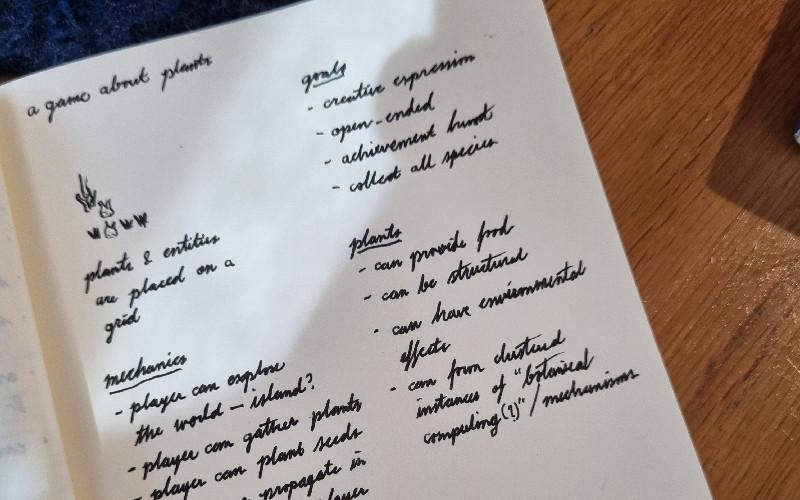 a game about plants
plants & entities
are placed on a
grid
mechanics
- player can explore
the world - island?
- player can gather plants
- player can plant seeds
propagate in
player
goals
- creative expression
- open-ended
- achievement hunt
- collect all species
plants
- can provide food
- can be structural
- can have environmental
effects
- can form clustered
instances of "botanical
computing(?)"/mechanisms